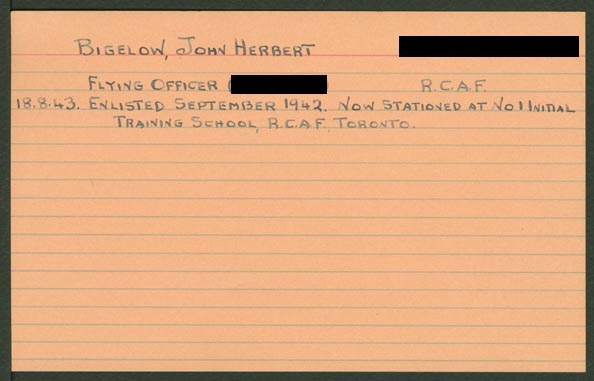 BIGELOW, JOHN HERBERT
FLYING OFFICER ( R.C.A.F.
18.8.43. ENLISTED SEPTEMBER 1942. NOW STATIONED AT NO 1 INITIAL
TRAINING SCHOOL, R.C.A.F. TORONTO.